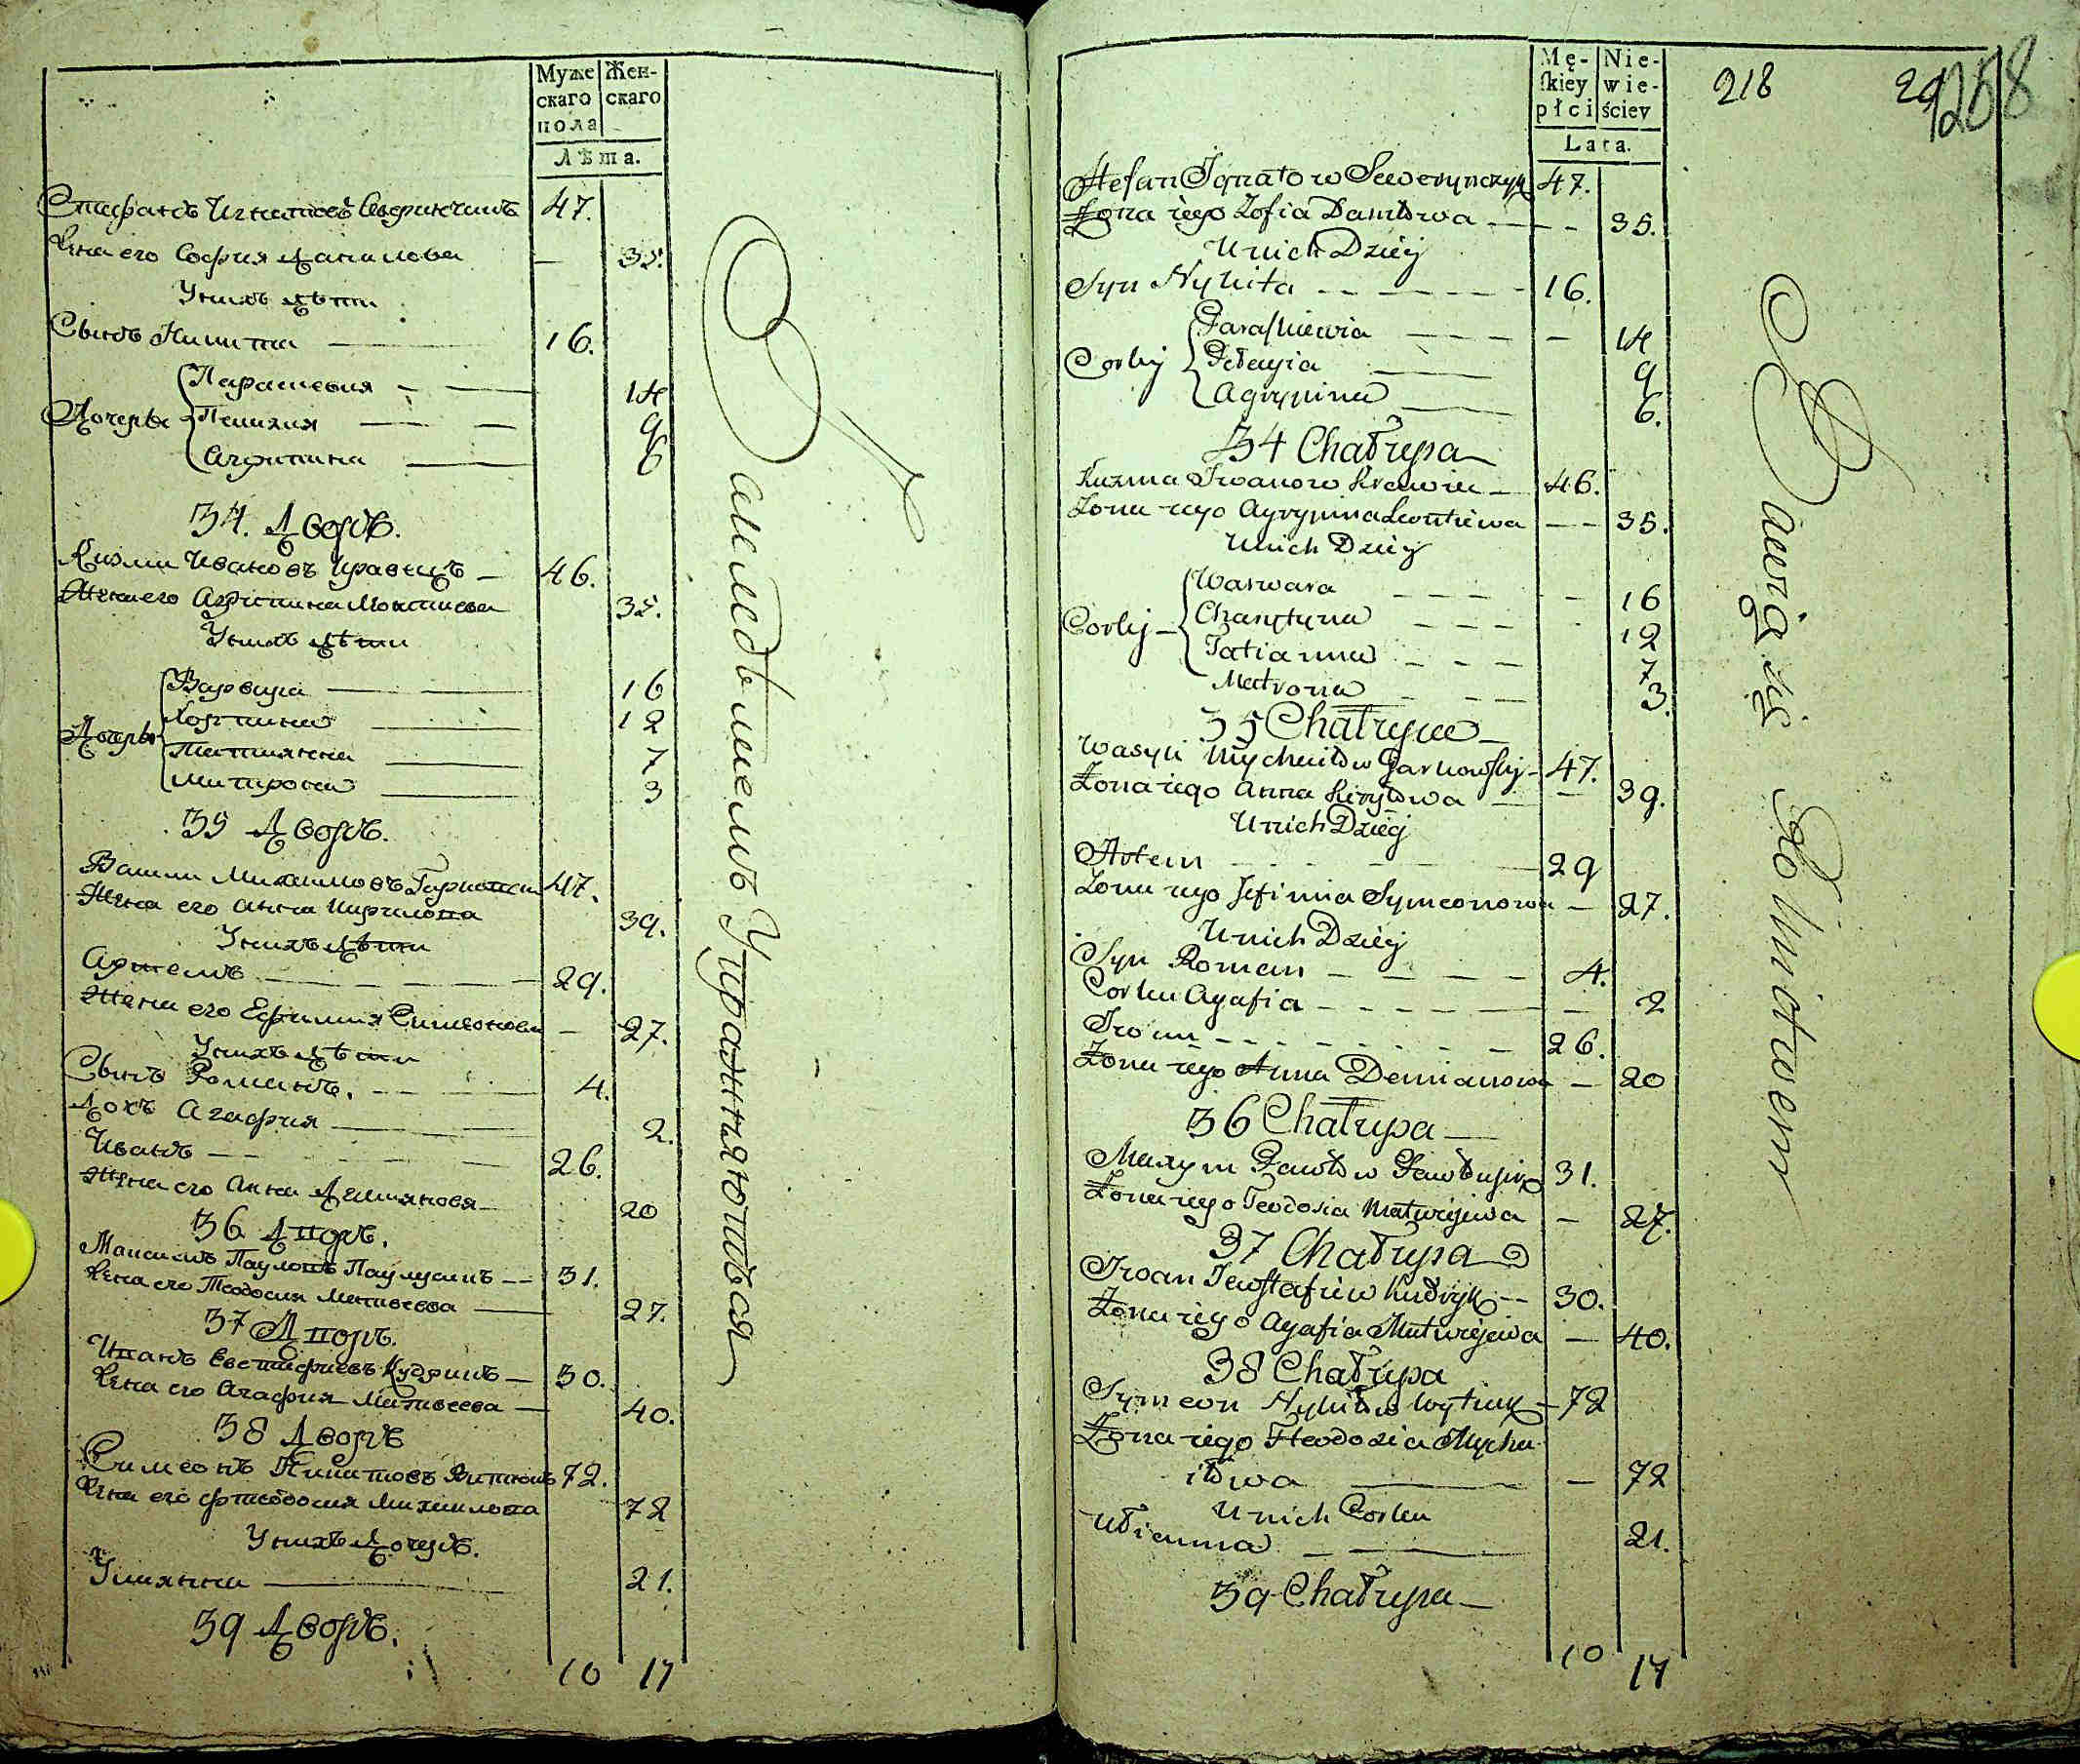 Муже Жен-
скаго скаго
пола
Лѣта.
Стефанъ Игнатовъ Северинчикъ 47.
Жена его София Данилова — 35.
У нихъ дѣти
Сынъ Никита 16.
Дочери
Парасковия 14
Пелагия 9
Агрипина 6
34. Дворъ.
Кузма Ивановъ Кравецъ 46.
Жена его Агрипина 35.
У нихъ дѣти
Дочери
Варвара 16
Харитина 12
Татиянна 7
Матрона 3
35 Дворъ.
Василь Михайловъ 47.
Жена его Анна Кирилова 39.
У нихъ дѣти
Артемъ 29.
Жена его Ефимия Симеонова — 27.
У нихъ дѣти
Сынъ Романъ. 4.
Дочь Агафия 2.
Иванъ 26.
Жена его Анна Демянова 20
36 Дворъ.
Максимъ Пауловъ 31.
Жена его Теодосия Матвеева 27.
37 Дворъ.
Иванъ Евстафиевъ Кудрикъ 30.
Жена его Агафия Матвеева 40.
38 Дворъ
Симеонъ Никитовъ 72.
Жена его Фтеодосия Михайлова 72
У нихъ Дочерь.
Улиянна 21.
39 Дворъ.
10 17
Упражняються
Mę- Nie-
skiey wie-
płci ściey
Lata.
218
258
Stefan Ignatow Sewerynczyk 47.
Żona iego Zofia Daniłowa 35.
U nich Dzieci
Syn Nykita 16.
Corki
Paraskiewia 14
Pełagia 9
Agrypina 6.
34 Chałupa
Kuzma Iwanow Krawiec 46.
Żona iego Agrypina Leontiewa 35.
U nich Dzieci
Corki
Warwara 16
Charytyna 12
Tatianna 7
Matrona 3.
35 Chałupa
Wasyli Mychaiłow 47.
Żona iego Anna Kiryłowa 39.
U nich Dzieci
Artem 29
Żona iego Jefimia Symeonowa 27.
U nich Dzieci
Syn Roman 4.
Corka Agafia 2
Iwan 26.
Żona iego Anna Demianowa 20
36 Chałupa
Maxym Pawłow 31.
Żona iego Teodosia Matwiejewa 27.
37 Chałupa
Iwan Jewstafiew Kudryk 30.
Żona iego Agafia Matwiejewa 40.
38 Chałupa
Symeon Nykitow 72
Żona iego Fteodosia Mycha-
iłowa 72
U nich Corka
Ulianna 21.
39 Chałupa
10 17
Bawią się Rolnictwem